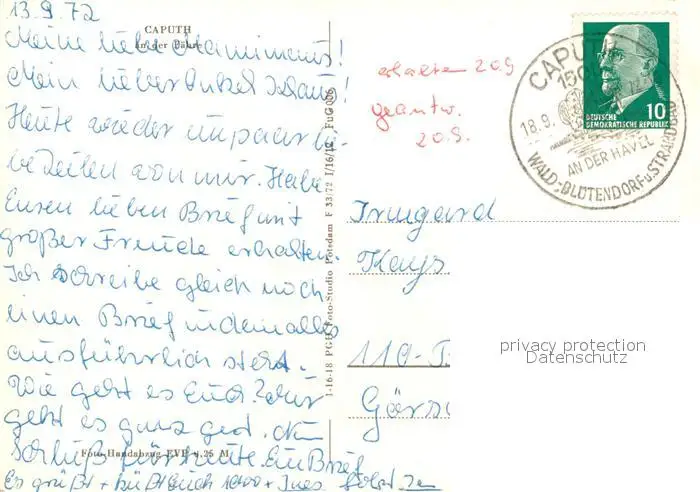 13.9.72
CAPUTH
an der Fähre
Meine liebe
Mein lieber Onkel
Heute wieder ein paar lie-
be Zeilen von mir. Habe
Euren lieben Brief mit
großer Freude erhalten.
Ich schreibe gleich noch
einen Brief in dem alles
ausführlich steht.
Wie geht es Euch? Mir
geht es ganz gut. Nun
Schluß für heute. Ein Brief
Foto-Handabzug EVP 1,25 M
Es grüßt + küßt Euch 1000 x Ines folgt
1-16-18 PGH Foto-Studio Potsdam F 33/72 I/16/18 FuG 006
erhalten 20.9
geantw.
20.9.
CAPUTH
150
18.9.
AN DER HAVEL
WALD-BLÜTENDORF u. STRANDBAD
10
DEUTSCHE
DEMOKRATISCHE REPUBLIK
Irmgard
Kays
110
privacy protection
Datenschutz